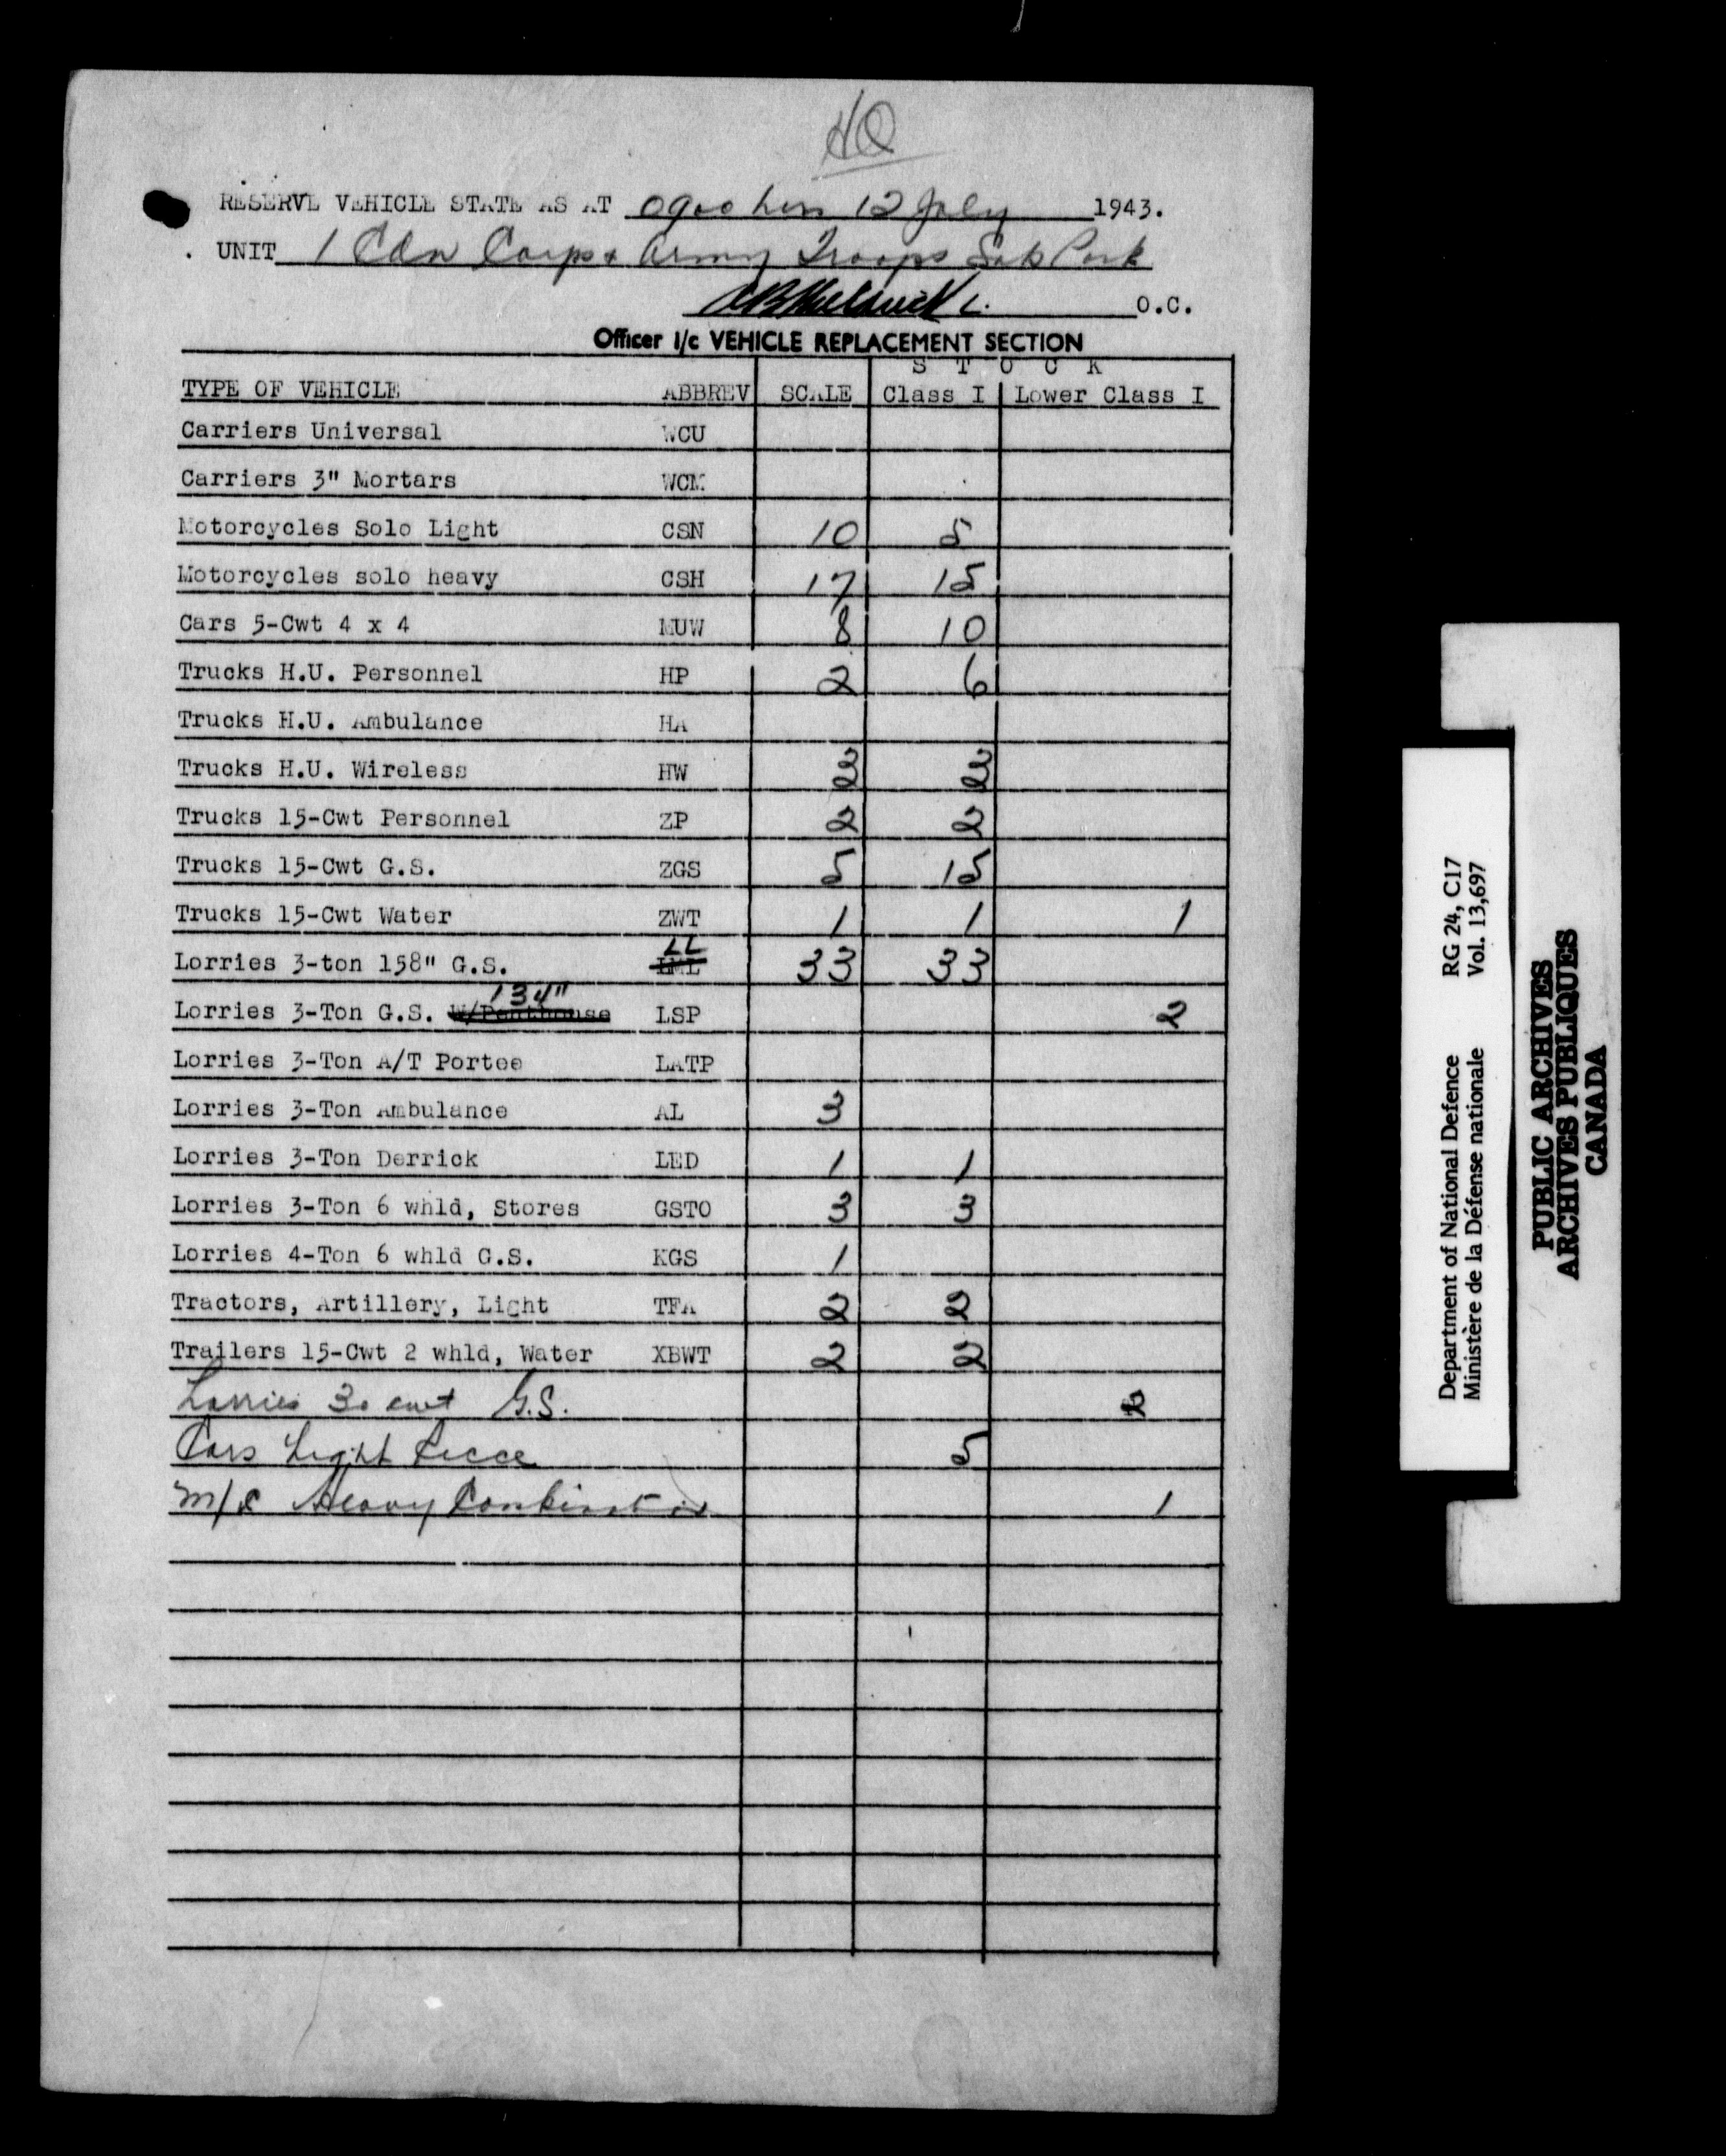 HQ
RESERVE VEHICLE STATE AS AT 0900 hrs 12 July 1943.
UNIT 1 Cdn Corps & Army Troops Sub Park
O.C.
Officer i/c VEHICLE REPLACEMENT SECTION
S T O C K
TYPE OF VEHICLE ABBREV SCALE Class I Lower Class I
Carriers Universal WCU
Carriers 3" Mortars WCM
Motorcycles Solo Light CSN 10 5
Motorcycles solo heavy CSH 17 15
Cars 5-Cwt 4 x 4 MUW 8 10
Trucks H.U. Personnel HP 2 6
Trucks H.U. Ambulance HA
Trucks H.U. Wireless HW
Trucks 15-Cwt Personnel ZP 2 2
Trucks 15-Cwt G.S. ZGS 5 15
Trucks 15-Cwt Water ZWT 1 1 1
Lorries 3-ton 158" G.S. LL 33 33
Lorries 3-Ton G.S. W/Penthouse 134" LSP 2
Lorries 3-Ton A/T Portee LATP
Lorries 3-Ton Ambulance AL 3
Lorries 3-Ton Derrick LED 1 1
Lorries 3-Ton 6 whld, Stores GSTO 3 3
Lorries 4-Ton 6 whld G.S. KGS 1
Tractors, Artillery, Light TFA 2 2
Trailers 15-Cwt 2 whld, Water XBWT 2 2
Lorries 30 cwt G.S. 2
Cars Light Recce 5
M/C Heavy Combination 1
Department of National Defence RG 24, C17
Ministère de la Défense nationale Vol. 13,697
PUBLIC ARCHIVES
ARCHIVES PUBLIQUES
CANADA